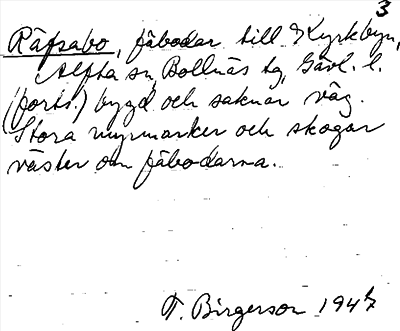 3
Räfsabo, fäbodar till Kyrkbyn,
Alfta sn, Bollnäs tg, Gävl. l.
(forts.) bygd och saknar väg.
Stora myrmarker och skogar
väster om fäbodarna.
T. Birgerson 1947